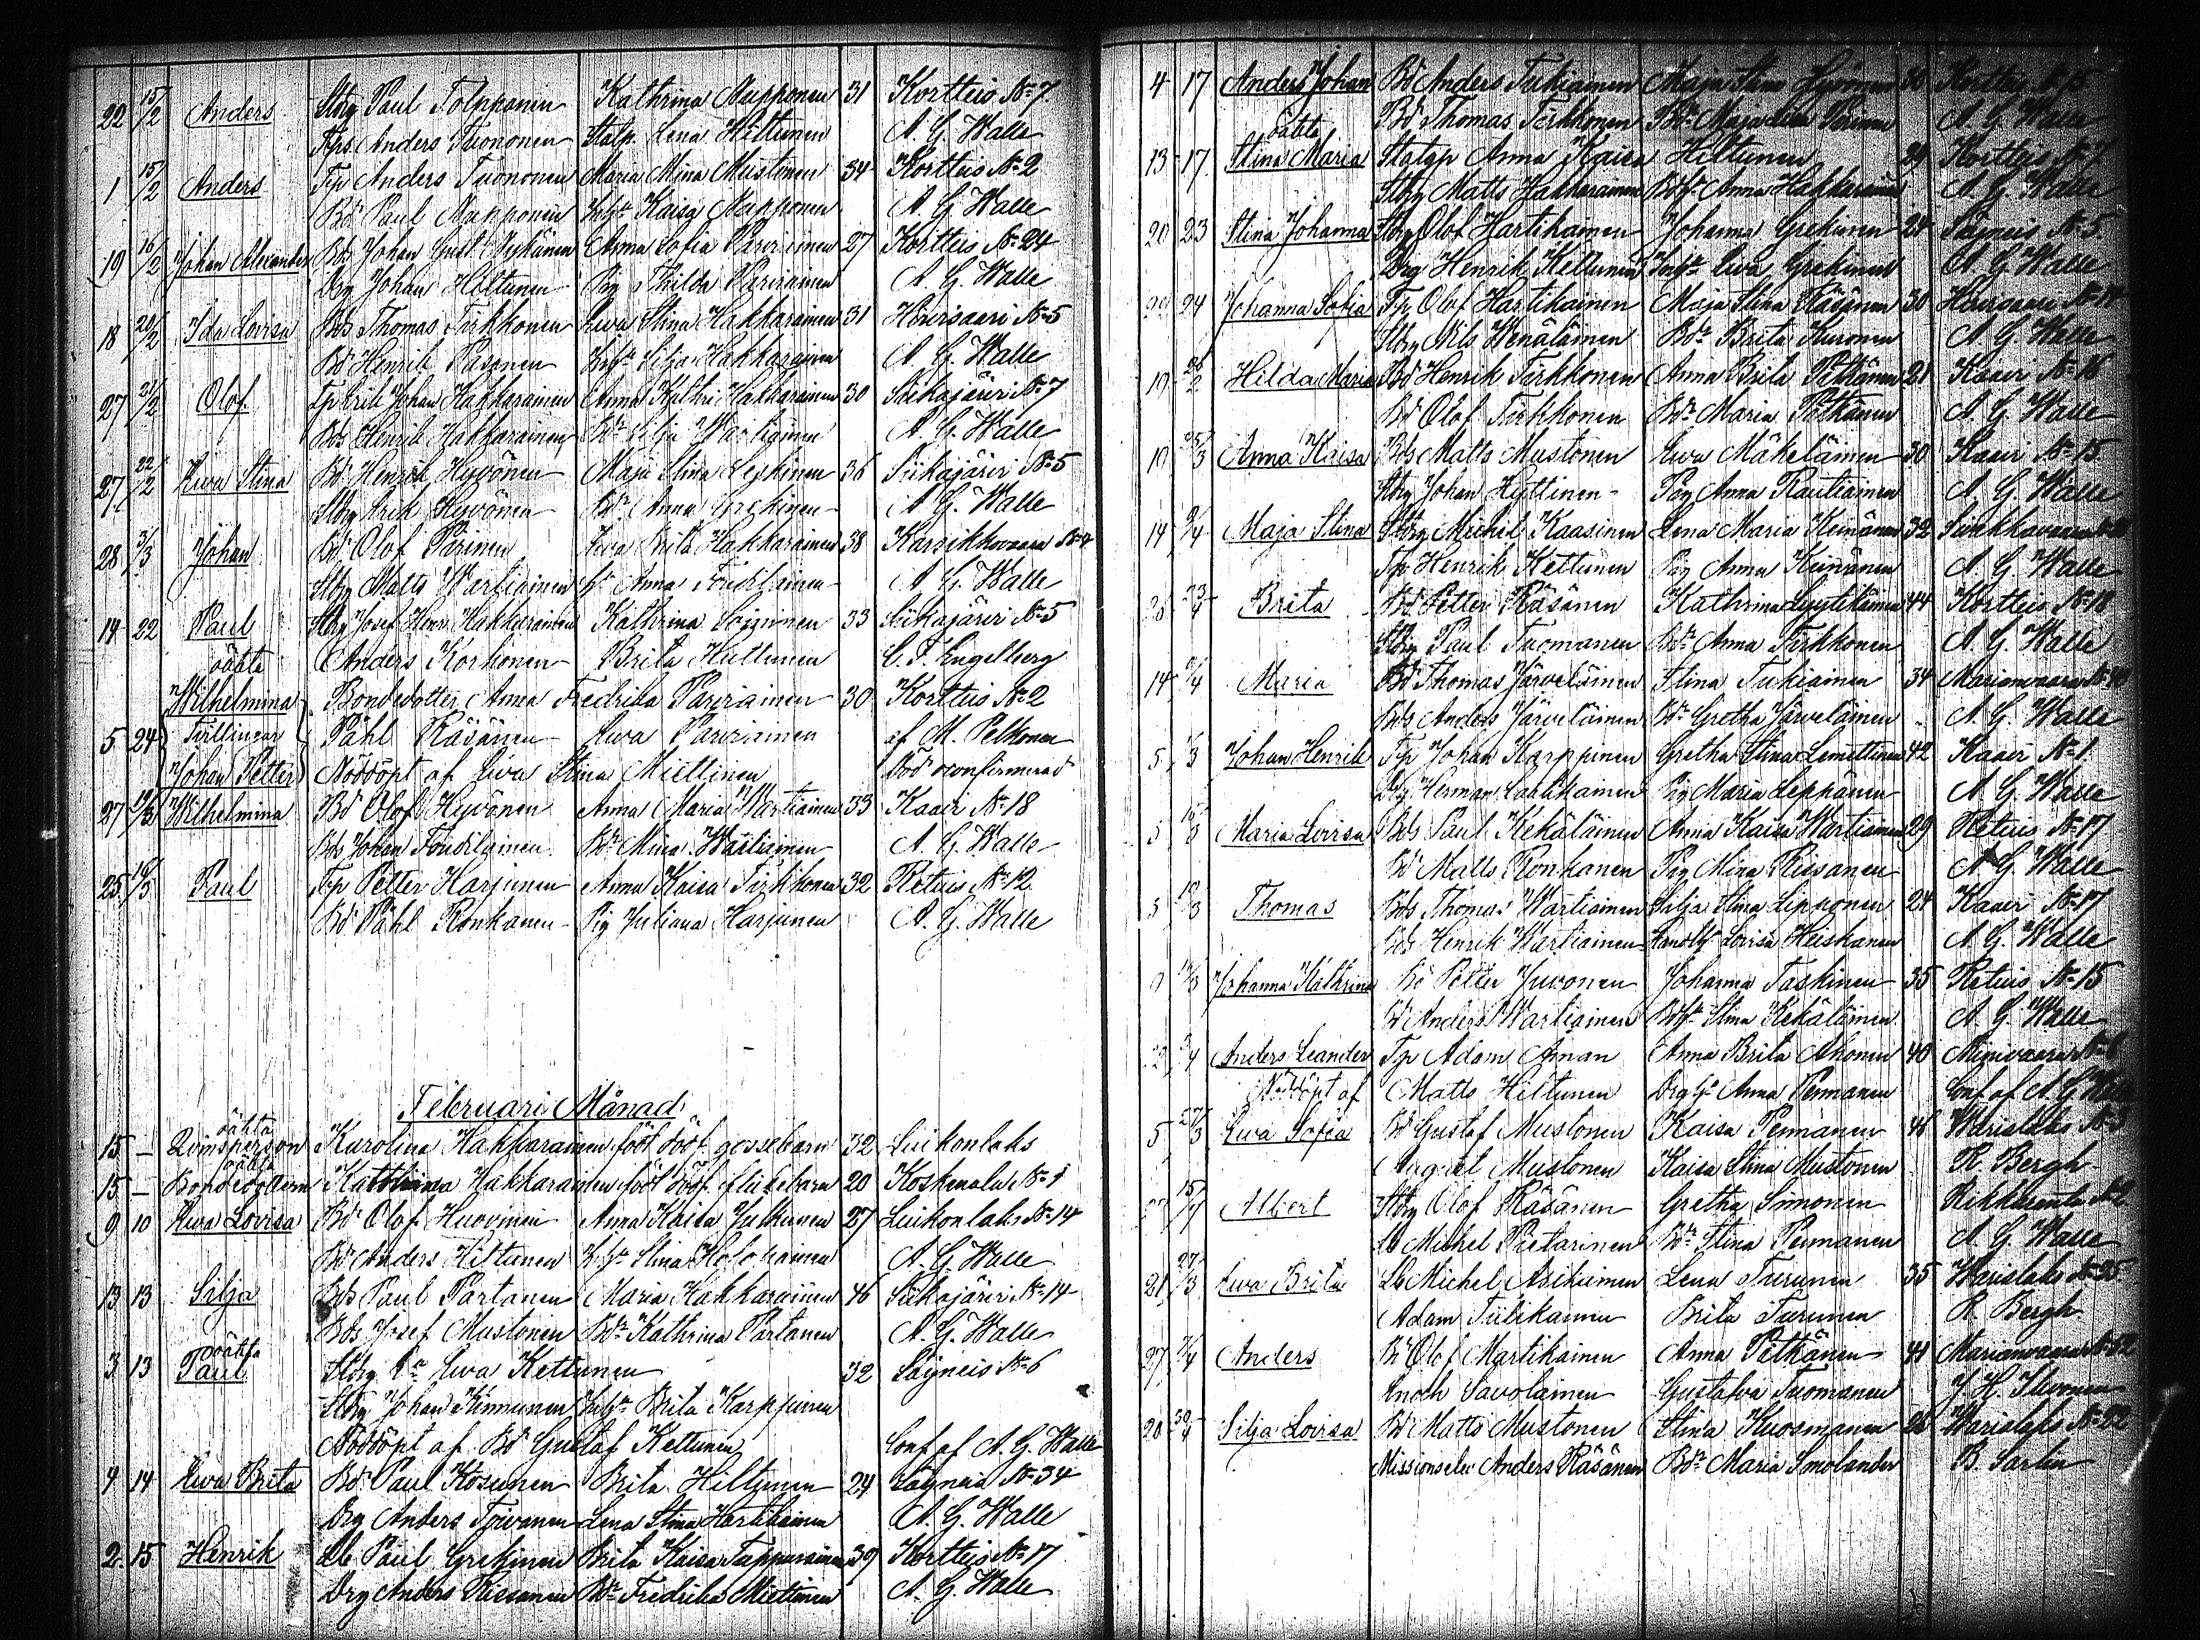 22 15/2 Anders Stbg Paul Tolppanen Kathrina Nupponen 31 Kortteis No 7.
Tps Anders Tuononen Statp. Lena Hiltunen A. G. Walle
1 15/2 Anders Tp Anders Tuononen Maria Mina Mustonen 34 Kortteis No 2
Bd Paul Nupponen Kaisa Nupponen A. G. Walle
19 16/2 Johan Alexander Bds Johan Gust. Anna Sofia Parviainen 27 Kortteis No 24
Drg Johan Hiltunen Pig Thilda Parviainen A. G. Walle
18 20/2 Ida Lovisa Bds Thomas Tirkkonen Ewa Stina Hakkarainen 31 Horsaari No 5
Bd Henrik Pasonen Silja Hakkarainen A. G. Walle
27 21/2 Olof Tp Erik Johan Hakkarainen Anna Kathri Hakkarainen 30 Siikajärvi No 7
Bds Henrik Hakkarainen Bdr Silja Wartiainen A. G. Walle
27 22/2 Ewa Stina Bd Henrik Hyvönen Maja Stina Leskinen 36 Siikajärvi No 5
Stbg Erik Hyvönen Bdr Anna Grekinen A. G. Walle
28 3/3 Johan Bd Olof Parinen Ewa Brita Hakkarainen 38 Karsikkovaara No 4
Stbg Matts Wartiainen Anna A. G. Walle
14 22 Paul Stbg Josef Henr. Hakkarainen Kathrina Soininen 33 Siikajärvi No 5
Anders Korhonen Brita Huttunen C. F. Engelberg
oäkta
Wilhelmina Bondedotter Anna Fredrika Parviainen 30 Kortteis No 2
5 24 Tvillingar Påhl Räsänen Ewa Parviainen af M. Pelkonen
Johan Petter Nöddöpt af Ewa Stina Miettinen Död oconfirmerad
27 19/3 Wilhelmina Bd Olof Hyvönen Anna Maria Wartiainen 33 Kaavi No 18
Bds Johan Bdr Mina Wartiainen A. G. Walle
25 Paul Tp Petter Harjunen Anna Kaisa Tirkkonen 32 Retuis No 12
Bd Påhl Ronkanen Pig Juliana Harjunen A. G. Walle
Februari Månad
oäkta
15 — Qvinsperson Karolina Hakkarainen födt dödf. gossebarn 32 Luikonlaks
oäkta
15 — Bondedottern Kathrina Hakkarainen födt dödf. flickebarn 20 Koskenala No 1
9 10 Ewa Lovisa Bd Olof Huovinen Anna Kaisa Julkunen 27 Luikonlaks No 14
Bd Anders Hiltunen Stina A. G. Walle
13 13 Silja Bds Paul Partanen Maria Hakkarainen 46 Siikajärvi No 14
Bds Josef Mustonen Bdr Kathrina Partanen A. G. Walle
oäkta
3 13 Paul Stbg Ewa Kettunen 32 Läyneis No 6
Stbg Johan Kinnunen Brita Karppinen
Nöddöpt af Bd Gustaf Kettunen Conf af A. G. Walle
4 14 Ewa Brita Bd Paul Kosunen Brita Hiltunen 24 Läyneis No 34
Drg Anders Toivanen Lena Stina Hartikainen A. G. Walle
2 15 Henrik Lb Paul Grekinen Brita Kaisa Tappurainen 39 Kortteis No 17
Drg Anders Riissanen Bdr Fredrika Miettinen A. G. Walle
4 17 Anders Johan Bd Anders Tukiainen Maja Stina Hyvönen 30 Kortteis No 15
Bd Thomas Tirkkonen A. G. Walle
oäkta
13 17 Stina Maria Statqp Anna Kaisa Hiltunen 29 Kortteis No
Stbg Matts Hakkarainen Anna Hakkarainen A. G. Walle
20 23 Stina Johanna Stbg Olof Hartikainen Johanna Grekinen 24 Läyneis No 5
Drg Henrik Kettunen Ewa Grekinen A. G. Walle
24 Johanna Sofia Tp Olof Hartikainen Maja Stina Räsänen 30
Stbg Nils Wenäläinen Bdr Brita Kuronen A. G. Walle
19 Hilda Maria Bd Henrik Tirkkonen Anna Brita Pitkänen 21 Kaavi No 16
Bd Olof Tirkkonen Bdr Maria Pitkänen A. G. Walle
19 25/3 Anna Kaisa Bds Matts Mustonen Ewa Mäkeläinen 30 Kaavi No 15
Stbg Johan Hyttinen Pig Anna Rautiainen A. G. Walle
14 Maja Stina Stbg Michel Kaasinen Lena Maria Keinänen 32
Tp Henrik Kettunen Pig Anna Keinänen A. G. Walle
Brita Bd Petter Räsänen Kathrina Lyytikäinen 44 Kortteis No 18
Stbg Paul Tuomanen Bdr Anna Tirkkonen A. G. Walle
14 Maria Bd Thomas Järveläinen Stina Tukiainen 34 Marianvaara
Bds Anders Järveläinen Bdr Gretha Järveläinen A. G. Walle
5 Johan Henrik Tp Johan Karppinen Gretha Stina Lemettinen 42 Kaavi No 1.
Drg Herman Laukkainen Pig Maria Leppänen A. G. Walle
5 Maria Lovisa Bds Paul Kekäläinen Anna Kaisa Wartiainen 29 Retuis No 17
Bd Matts Ronkanen Pig Mina Riissanen A. G. Walle
Thomas Bds Thomas Wartiainen Silja Stina Lipponen 24 Kaavi No 17
Bds Henrik Wartiainen Lovisa Heiskanen A. G. Walle
Johanna Kathrina Bd Petter Juvonen Johanna Taskinen 35 Retuis No 15
Bd Anders Wartiainen Stina Kekäläinen A. G. Walle
Anders Leander Tp Adam Åman Anna Brita Ahonen 40 Niinivaara
Nöddöpt af Matts Hiltunen Anna Pennanen Conf af A. G. Walle
5 27/3 Ewa Sofia Bd Gustaf Mustonen Kaisa Pennanen 46 Warislaks No 3
August Mustonen Kaisa Stina Mustonen R. Bergh
Albert Stbg Olof Räsänen Gretha Simonen Rikkaranta No 2
Lb Michel Pietarinen Bdr Stina Pennanen A. G. Walle
21 27/3 Ewa Brita Lb Michel Asikainen Lena Turunen 35 Warislaks No 35
Adam Tiilikainen Brita Turunen R. Bergh
27 Anders Bd Olof Martikainen Anna Pitkänen 41 Marianvaara No 32
Enoch Savolainen Gustafva Tuomanen
28 Silja Lovisa Bd Matts Mustonen Stina Kuosmanen 26 Warislaks No 22
Missionselev Anders Räsänen Bdr Maria Smolander B. Sarlin